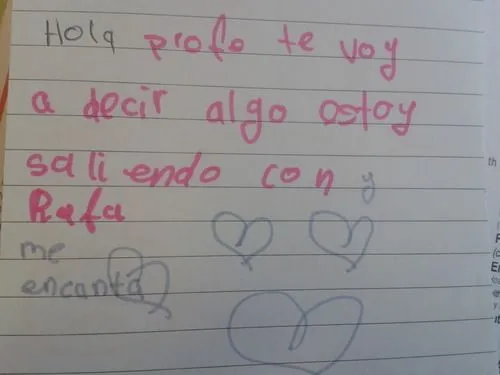 Hola profo te voy
a decir algo ostoy
sali endo con y
Rafa
me
encanta